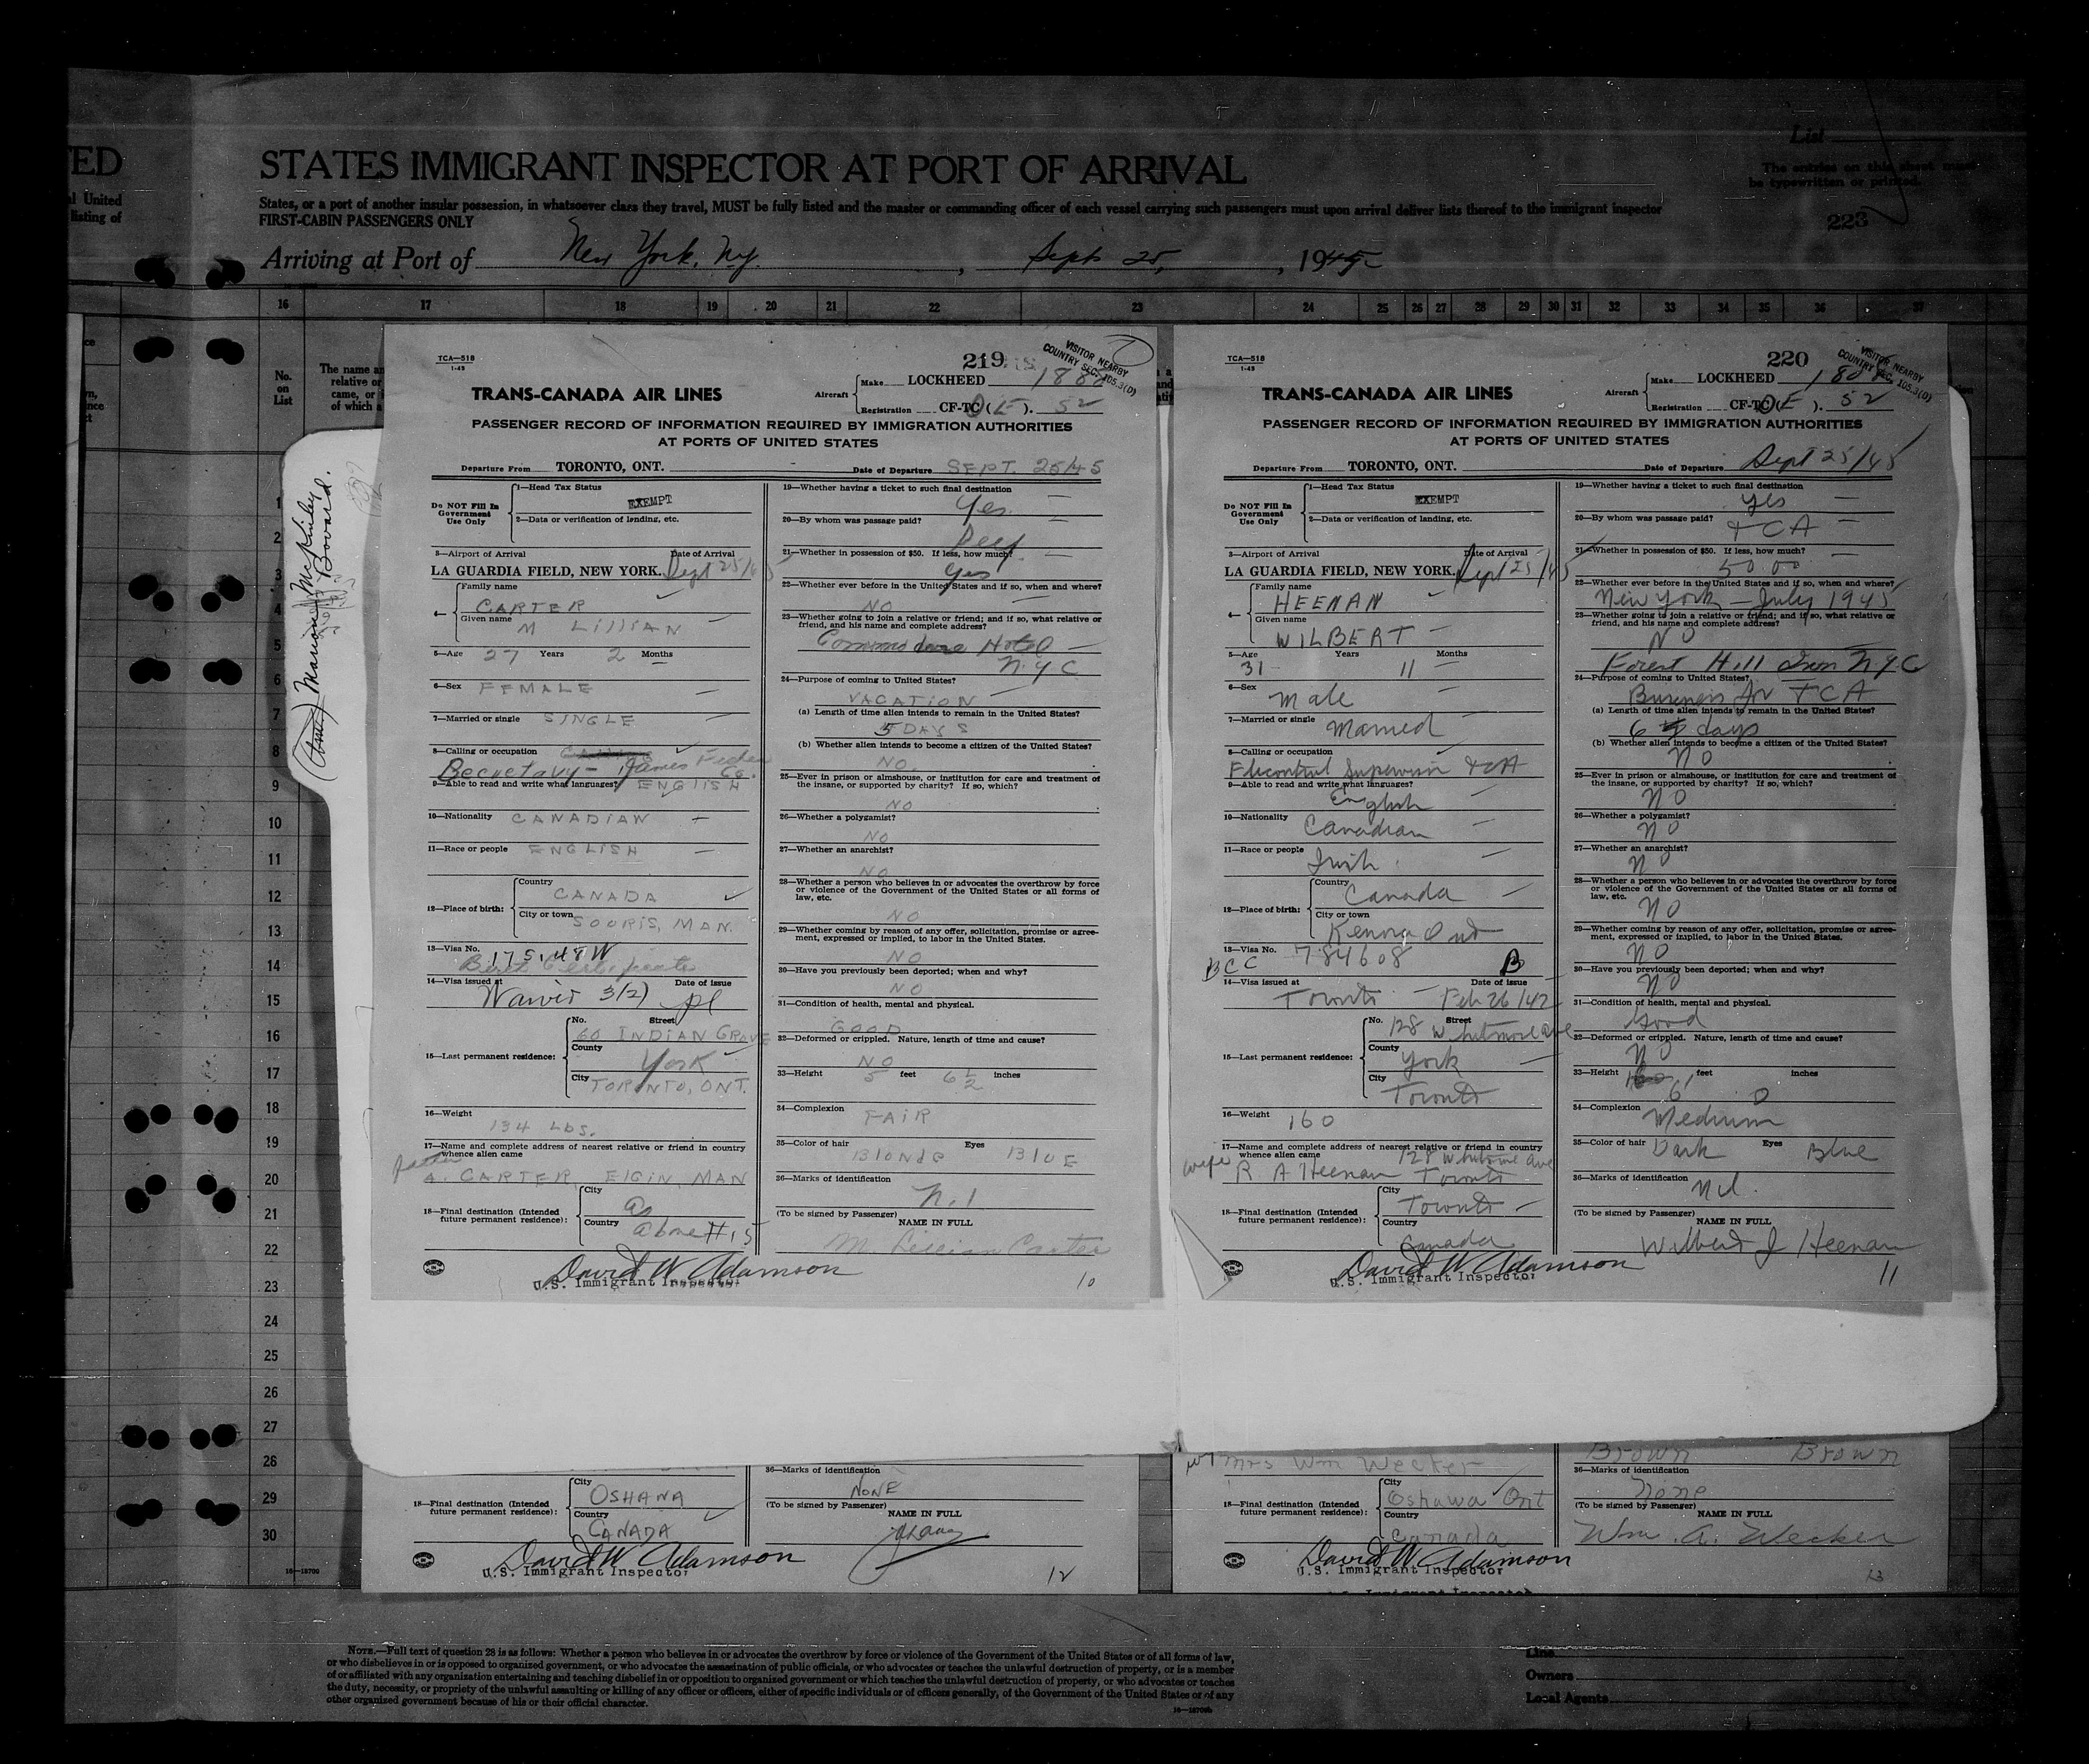 TED
al United
listing of
List
The entries on this sheet must
be typewritten or printed.
223
STATES IMMIGRANT INSPECTOR AT PORT OF ARRIVAL
States, or a port of another insular possession, in whatsoever class they travel, MUST be fully listed and the master or commanding officer of each vessel carrying such passengers must upon arrival deliver lists thereof to the immigrant inspector
FIRST-CABIN PASSENGERS ONLY
Arriving at Port of New York, N.Y. , Sept 25, , 1945
16 17 18 19 20 21 22 23 24 25 26 27 28 29 30 31 32 33 34 35 36 37
No.
on
List
The name an
relative or
came, or i
of which a
1
2
3
4
5
6
7
8
9
10
11
12
13
14
15
16
17
18
19
20
21
22
23
24
25
26
27
28
29
30
Marion McKinley
Bovard.
TCA—518
1-43
219
VISITOR NEARBY
COUNTRY SEC. 105.3(D)
TRANS-CANADA AIR LINES
Aircraft
Make LOCKHEED
Registration CF-TC ( ). 52
PASSENGER RECORD OF INFORMATION REQUIRED BY IMMIGRATION AUTHORITIES
AT PORTS OF UNITED STATES
Departure From TORONTO, ONT. Date of Departure SEPT. 25/45
Do NOT Fill In
Government
Use Only
1—Head Tax Status
EXEMPT
2—Data or verification of landing, etc.
3—Airport of Arrival Date of Arrival
LA GUARDIA FIELD, NEW YORK. Sept 25/45
4—
Family name
CARTER
Given name
M LILLIAN
5—Age 27 Years 2 Months
6—Sex FEMALE
7—Married or single SINGLE
8—Calling or occupation
Secretary - James Co.
9—Able to read and write what languages? ENGLISH
10—Nationality CANADIAN
11—Race or people ENGLISH
12—Place of birth:
Country
CANADA
City or town
SOURIS, MAN.
13—Visa No.
Birth Certificate
14—Visa issued at Date of issue
Waiver 3(2)
15—Last permanent residence:
No. Street
60 INDIAN GROVE
County
York
City
TORONTO, ONT.
16—Weight
134 LBS.
17—Name and complete address of nearest relative or friend in country
whence alien came
father
A. CARTER ELGIN, MAN
18—Final destination (Intended
future permanent residence):
City
As
Country
above #15
19—Whether having a ticket to such final destination
Yes
20—By whom was passage paid?
Self
21—Whether in possession of $50. If less, how much?
Yes
22—Whether ever before in the United States and if so, when and where?
NO
23—Whether going to join a relative or friend; and if so, what relative or
friend, and his name and complete address?
Commodore Hotel
N.Y.C
24—Purpose of coming to United States?
VACATION
(a) Length of time alien intends to remain in the United States?
5 DAYS
(b) Whether alien intends to become a citizen of the United States?
NO.
25—Ever in prison or almshouse, or institution for care and treatment of
the insane, or supported by charity? If so, which?
NO
26—Whether a polygamist?
NO
27—Whether an anarchist?
NO
28—Whether a person who believes in or advocates the overthrow by force
or violence of the Government of the United States or all forms of
law, etc.
NO
29—Whether coming by reason of any offer, solicitation, promise or agree-
ment, expressed or implied, to labor in the United States.
NO
30—Have you previously been deported; when and why?
NO
31—Condition of health, mental and physical.
GOOD
32—Deformed or crippled. Nature, length of time and cause?
NO
33—Height 5 feet 6 1/2 inches
34—Complexion
FAIR
35—Color of hair Eyes
BLONDE BLUE
36—Marks of identification
Nil
(To be signed by Passenger)
NAME IN FULL
M. Lillian Carter
David W. Adamson
U.S. Immigrant Inspector
10
TCA—518
1-43
220
VISITOR NEARBY
COUNTRY SEC. 105.3(D)
TRANS-CANADA AIR LINES
Aircraft
Make LOCKHEED
Registration CF-TC ( ). 52
PASSENGER RECORD OF INFORMATION REQUIRED BY IMMIGRATION AUTHORITIES
AT PORTS OF UNITED STATES
Departure From TORONTO, ONT. Date of Departure Sept 25/45
Do NOT Fill In
Government
Use Only
1—Head Tax Status
EXEMPT
2—Data or verification of landing, etc.
3—Airport of Arrival Date of Arrival
LA GUARDIA FIELD, NEW YORK. Sept 25/45
4—
Family name
HEENAN
Given name
WILBERT
5—Age Years Months
31 11
6—Sex
Male
7—Married or single
Married
8—Calling or occupation
Supervisor TCA
9—Able to read and write what languages?
English
10—Nationality
Canadian
11—Race or people
Irish
12—Place of birth:
Country
Canada
City or town
Kenora Ont
13—Visa No. 784608 B
BCC
14—Visa issued at Date of issue
Toronto - Feb 26/42
15—Last permanent residence:
No. Street
128 Whitmore Ave
County
York
City
Toronto
16—Weight
160
17—Name and complete address of nearest relative or friend in country
whence alien came 128 Whitmore Ave
wife R A Heenan Toronto
18—Final destination (Intended
future permanent residence):
City
Toronto
Country
Canada
19—Whether having a ticket to such final destination
Yes
20—By whom was passage paid?
TCA
21—Whether in possession of $50. If less, how much?
50.00
22—Whether ever before in the United States and if so, when and where?
New York - July 1945
23—Whether going to join a relative or friend; and if so, what relative or
friend, and his name and complete address?
NO
Forest Hill Inn N.Y.C
24—Purpose of coming to United States?
Business for TCA
(a) Length of time alien intends to remain in the United States?
6 days
(b) Whether alien intends to become a citizen of the United States?
NO
25—Ever in prison or almshouse, or institution for care and treatment of
the insane, or supported by charity? If so, which?
NO
26—Whether a polygamist?
NO
27—Whether an anarchist?
NO
28—Whether a person who believes in or advocates the overthrow by force
or violence of the Government of the United States or all forms of
law, etc.
NO
29—Whether coming by reason of any offer, solicitation, promise or agree-
ment, expressed or implied, to labor in the United States.
NO
30—Have you previously been deported; when and why?
NO
31—Condition of health, mental and physical.
Good
32—Deformed or crippled. Nature, length of time and cause?
NO
33—Height feet inches
6 0
34—Complexion
Medium
35—Color of hair Dark Eyes Blue
36—Marks of identification
Nil.
(To be signed by Passenger)
NAME IN FULL
Wilbert J Heenan
David W. Adamson
U.S. Immigrant Inspector
11
36—Marks of identification
NONE
18—Final destination (Intended
future permanent residence):
City
OSHAWA
Country
CANADA
(To be signed by Passenger)
NAME IN FULL
David W. Adamson
U.S. Immigrant Inspector
12
Mrs Wm Wecker
Brown Brown
36—Marks of identification
None
18—Final destination (Intended
future permanent residence):
City
Oshawa Ont
Country
Canada
(To be signed by Passenger)
NAME IN FULL
Wm. A. Wecker
David W. Adamson
U.S. Immigrant Inspector
13
16—18700
NOTE.—Full text of question 28 is as follows: Whether a person who believes in or advocates the overthrow by force or violence of the Government of the United States or of all forms of law,
or who disbelieves in or is opposed to organized government, or who advocates the assassination of public officials, or who advocates or teaches the unlawful destruction of property, or is a member
of or affiliated with any organization entertaining and teaching disbelief in or opposition to organized government or which teaches the unlawful destruction of property, or who advocates or teaches
the duty, necessity, or propriety of the unlawful assaulting or killing of any officer or officers, either of specific individuals or of officers generally, of the Government of the United States or of any
other organized government because of his or their official character.
Line
Owners
Local Agents